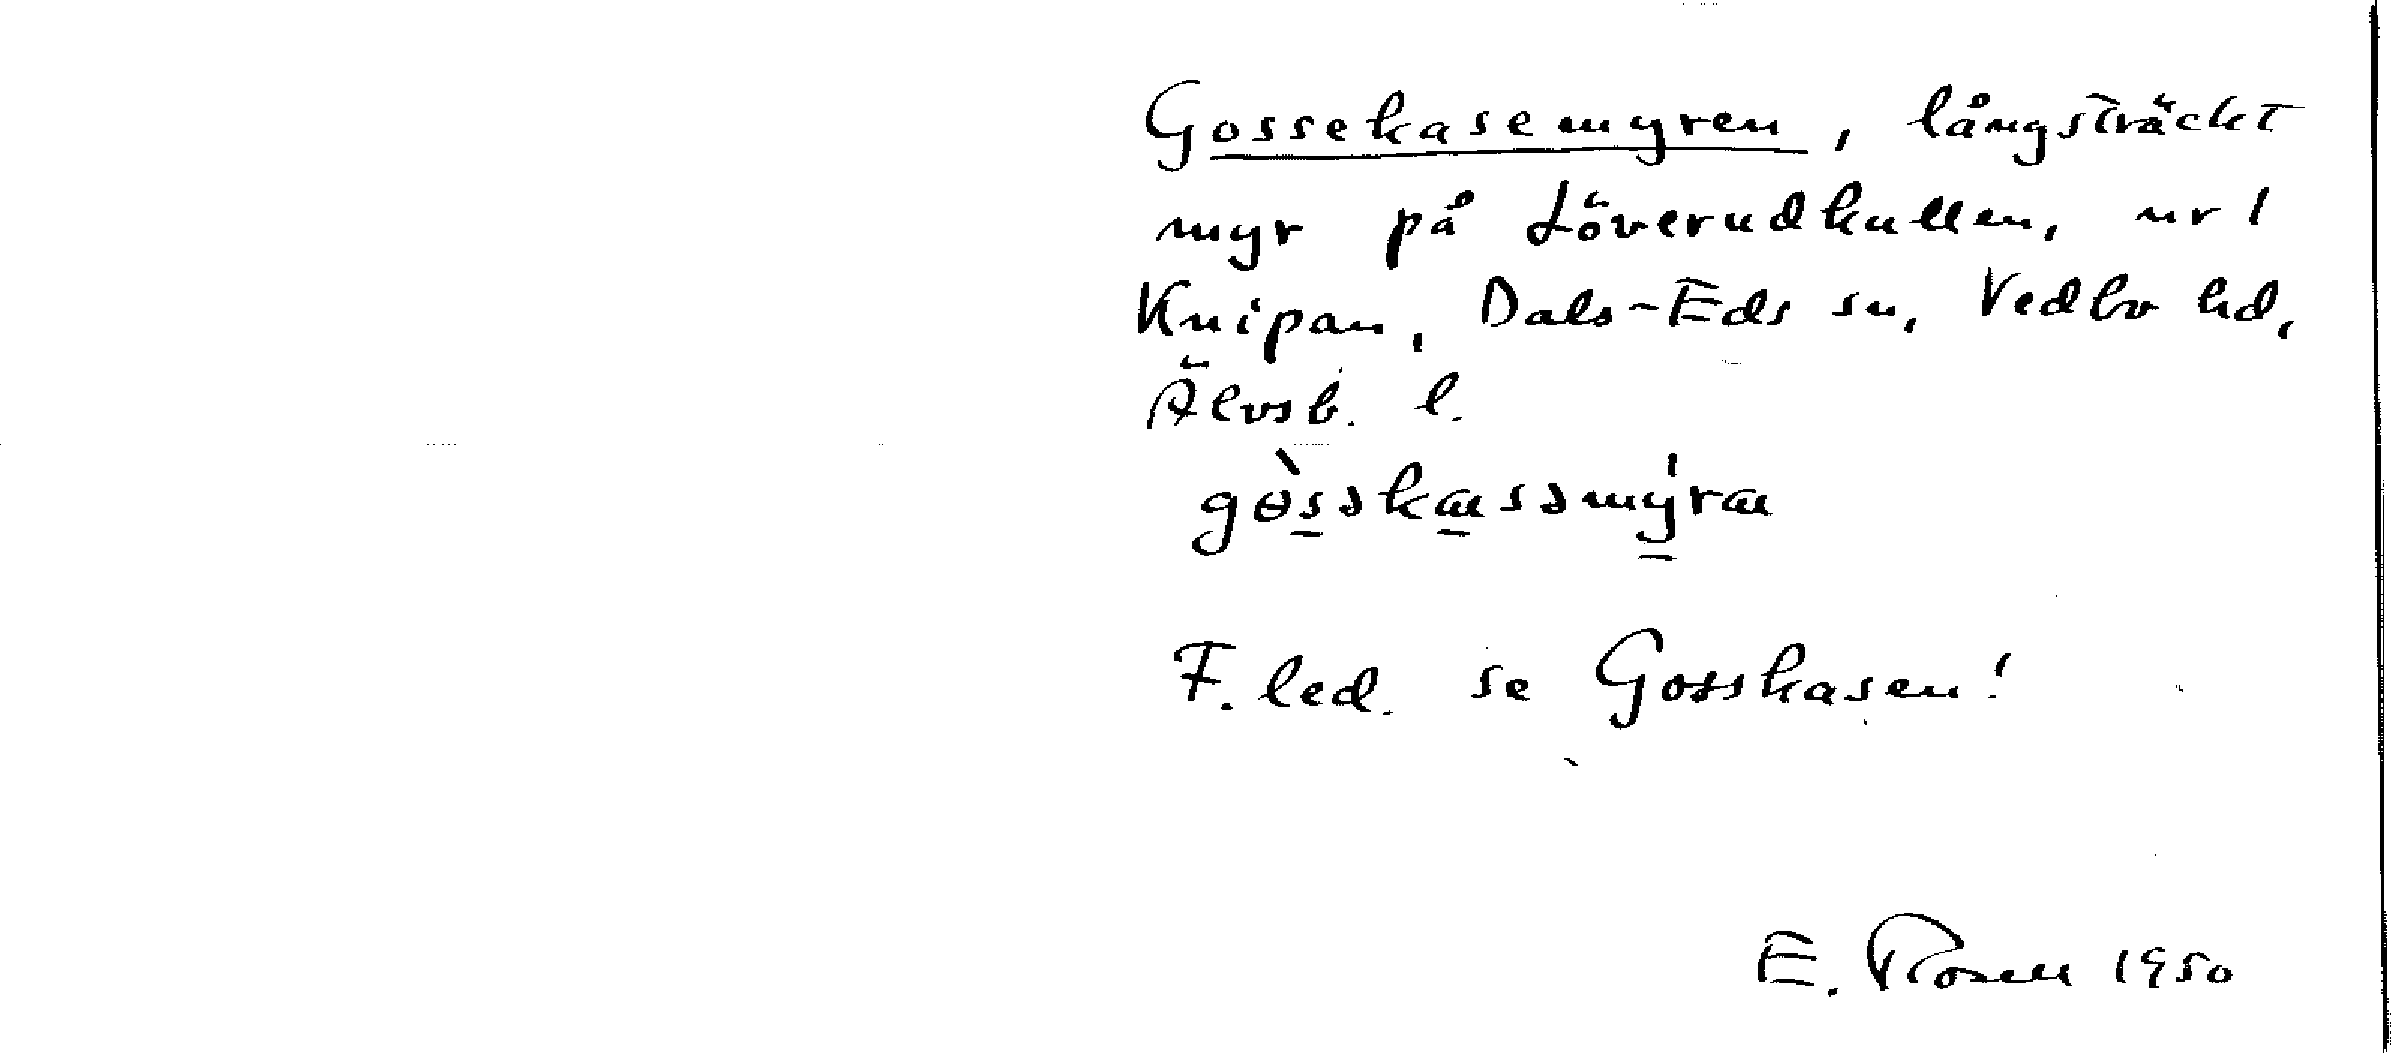 Gossekasemyren, långsträckt
myr på Löverudkullen, nr 1
Knipan, Dals-Eds sn, Vedbo hd,
Älvsb. l.
gɵ̀s̲əkas̲əmý̲ra
F. led. se Gosskasen!
E. Rosell 1950